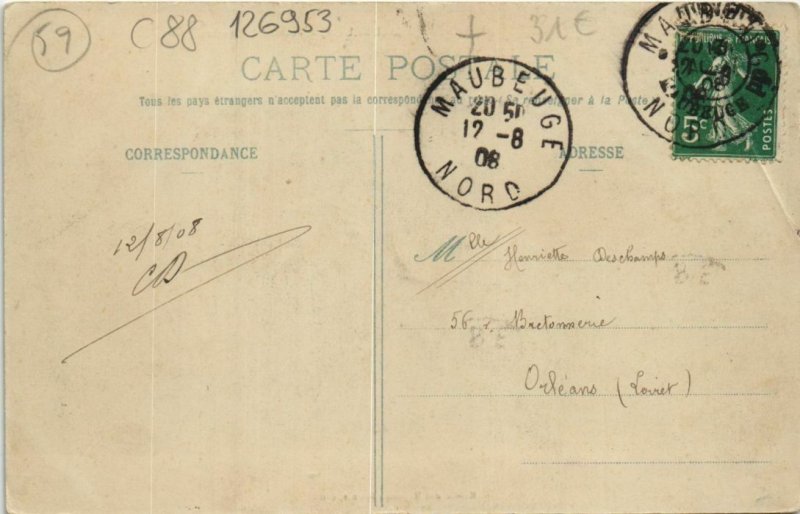 59 C88 126953 31€
CARTE POSTALE
Tous les pays étrangers n'acceptent pas la correspondance au recto (Se renseigner à la Poste
CORRESPONDANCE
ADRESSE
MAUBEUGE
20 50
12 -8
08
NORD
MAUB
NORD
5c
POSTES
12/8/08
CD
Mlle Henriette Deschamps
56 r. Bretonnerie
Orléans (Loiret)
BE
BE